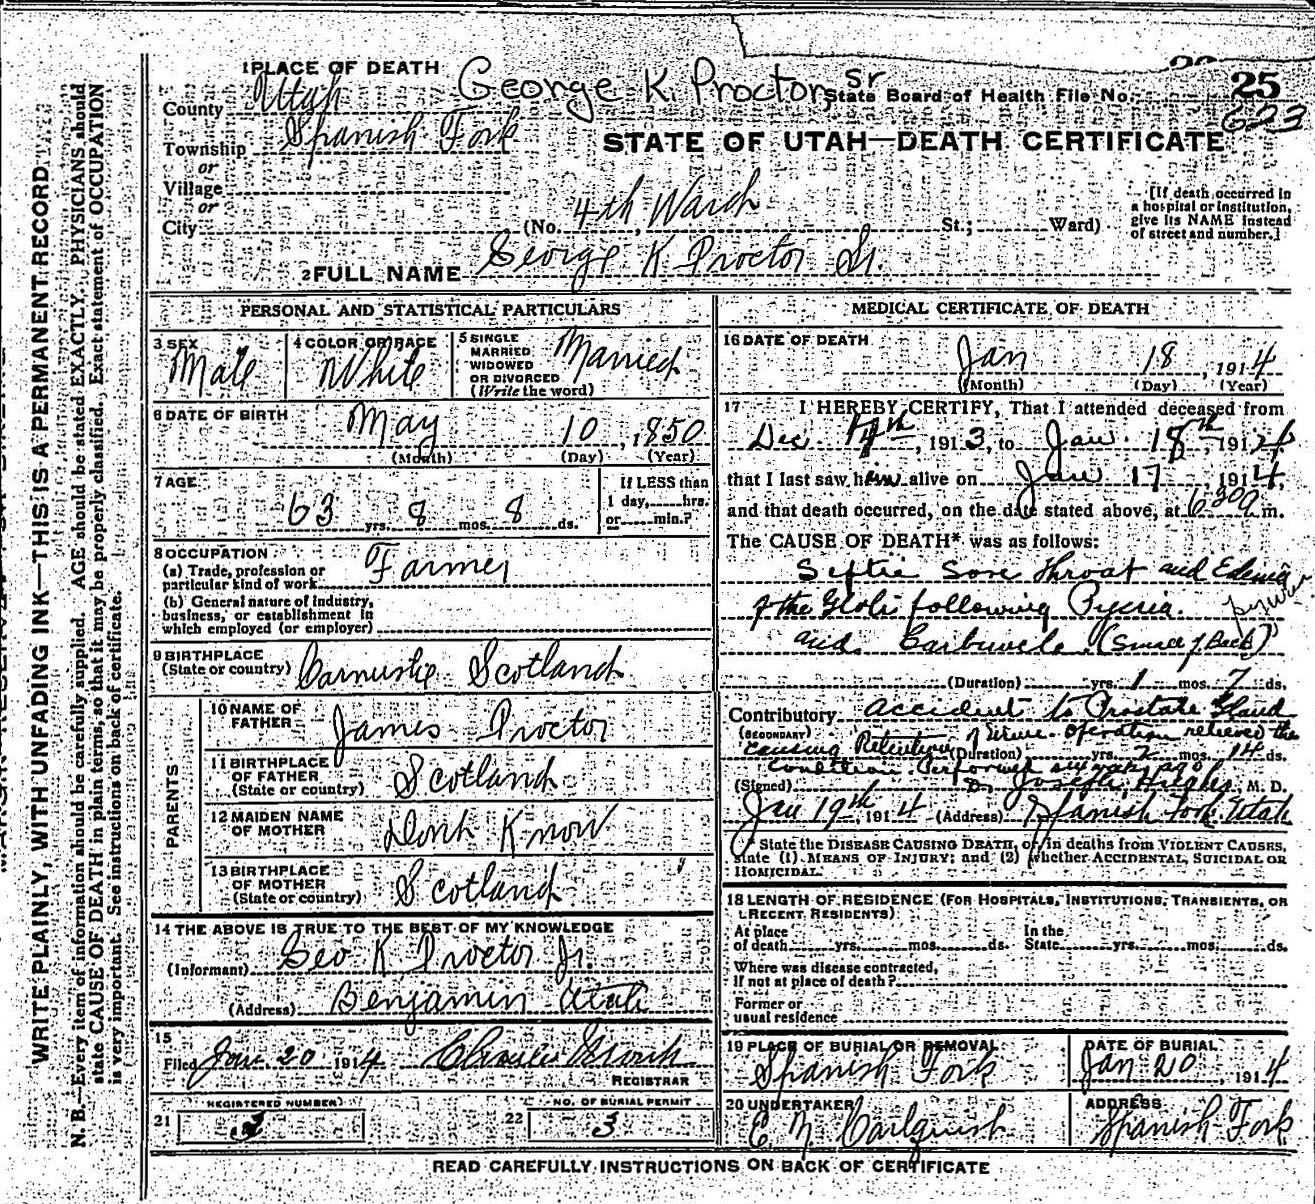 1 PLACE OF DEATH George K. Proctor, Sr State Board of Health File No. 25
County Utah 623
Township Spanish Fork
STATE OF UTAH—DEATH CERTIFICATE
or
Village
or
City (No. 4th Ward St.; Ward)
[If death occurred in
a hospital or institution,
give its NAME instead
of street and number.]
2 FULL NAME George K Proctor Sr.
PERSONAL AND STATISTICAL PARTICULARS
3 SEX Male
4 COLOR OR RACE White
5 SINGLE
MARRIED
WIDOWED
OR DIVORCED
(Write the word)
Married
6 DATE OF BIRTH
May 10, 1850
(Month) (Day) (Year)
7 AGE
63 yrs. 8 mos. 8 ds.
If LESS than
1 day, hrs.
or min.?
8 OCCUPATION
(a) Trade, profession or
particular kind of work Farmer
(b) General nature of industry,
business, or establishment in
which employed (or employer)
9 BIRTHPLACE
(State or country) Scotland
PARENTS
10 NAME OF
FATHER James Proctor
11 BIRTHPLACE
OF FATHER
(State or country) Scotland
12 MAIDEN NAME
OF MOTHER Dont Know
13 BIRTHPLACE
OF MOTHER
(State or country) Scotland
14 THE ABOVE IS TRUE TO THE BEST OF MY KNOWLEDGE
(Informant) Geo K Proctor Jr.
(Address) Benjamin Utah
15
Filed Jan 20 1914
REGISTRAR
21 REGISTERED NUMBER 3
22 NO. OF BURIAL PERMIT 3
MEDICAL CERTIFICATE OF DEATH
16 DATE OF DEATH
Jan 18, 1914
(Month) (Day) (Year)
17 I HEREBY CERTIFY, That I attended deceased from
Dec. 1913, to Jan. 18th, 1914
that I last saw him alive on Jan 17, 1914.
and that death occurred, on the date stated above, at 630 a m.
The CAUSE OF DEATH* was as follows:
Septic Sore throat and Edema
of the following
and Carbuncle (Small of Back)
(Duration) yrs. 1 mos. 7 ds.
Contributory accident to Prostate Gland
(SECONDARY) causing Retention of Urine. operation relieved the
(Duration) yrs. 2 mos. 14 ds.
condition. Performed
(Signed) Dr Joseph Hughes, M. D.
Jan 19th, 1914 (Address) Spanish Fork Utah
* State the DISEASE CAUSING DEATH, or, in deaths from VIOLENT CAUSES,
state (1) MEANS OF INJURY; and (2) whether ACCIDENTAL, SUICIDAL OR
HOMICIDAL.
18 LENGTH OF RESIDENCE (FOR HOSPITALS, INSTITUTIONS, TRANSIENTS, OR
RECENT RESIDENTS)
At place
of death yrs. mos. ds. In the
State yrs. mos. ds.
Where was disease contracted,
If not at place of death?
Former or
usual residence
19 PLACE OF BURIAL OR REMOVAL
Spanish Fork
DATE OF BURIAL
Jan 20, 1914
20 UNDERTAKER
ADDRESS
Spanish Fork
READ CAREFULLY INSTRUCTIONS ON BACK OF CERTIFICATE
WRITE PLAINLY, WITH UNFADING INK—THIS IS A PERMANENT RECORD.
N. B.—Every item of information should be carefully supplied. AGE should be stated EXACTLY. PHYSICIANS should
state CAUSE OF DEATH in plain terms, so that it may be properly classified. Exact statement of OCCUPATION
is very important. See instructions on back of certificate.